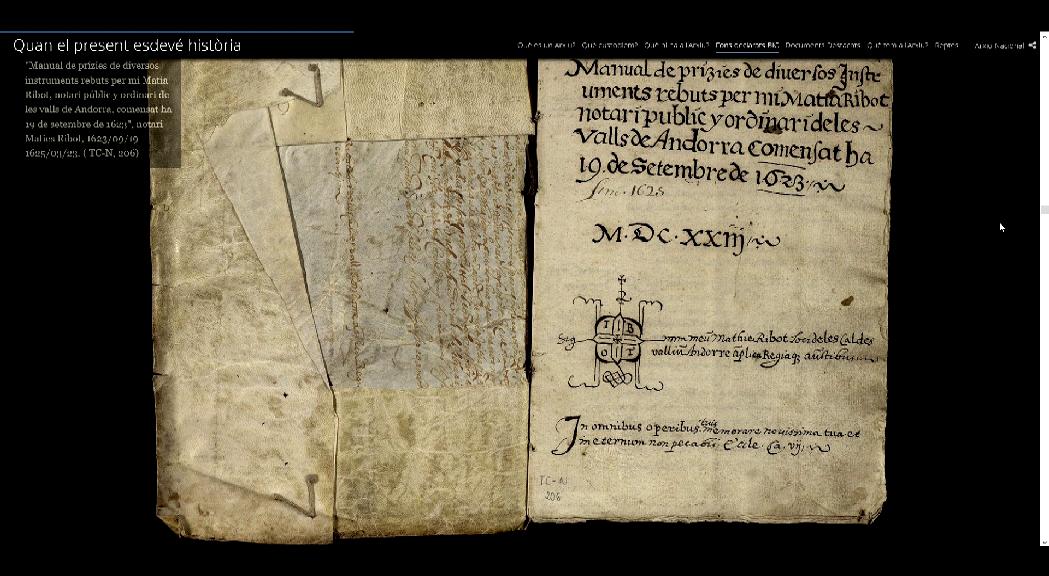 Quan el present esdevé història
Què és un Arxiu? Què custodiem? Què hi ha a l'Arxiu? Fons declarats BIC Documents Destacats Què fem a l'Arxiu? Reptes Arxiu Nacional
"Manual de prízies de diversos
instruments rebuts per mi Matia
Ribot, notari públic y ordinari de
les valls de Andorra, comensat ha
19 de setembre de 1623", notari
Maties Ribot, 1623/09/19
1625/03/23. ( TC-N, 206)
Manual de prizies de diversos Instr
uments rebuts per mi Matia Ribot
notari public y ordinari de les
Valls de Andorra Comensat ha
19. de Setembre de 1623
fins. 1625
M·DC·XXIIJ
Sig num meu Mathie Ribot loci de les Caldes
In omnibus operibus tuis memorare novissima tua et
in eternum non pecabis Eccle. Ca. vij
TC-N
206